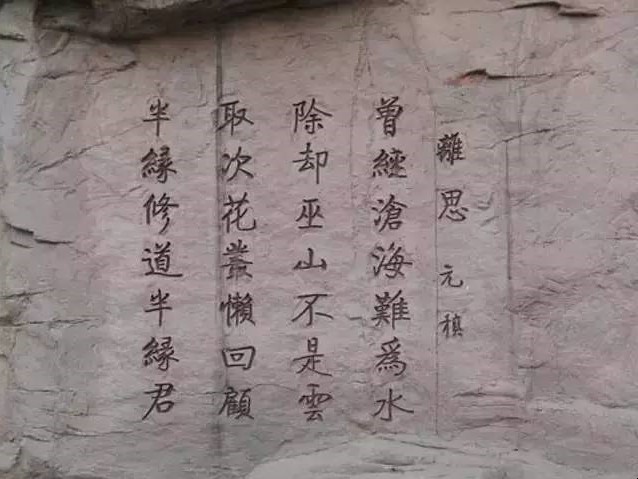 離思 元稹
曾經滄海難為水
除却巫山不是雲
取次花叢懶回顧
半緣修道半緣君